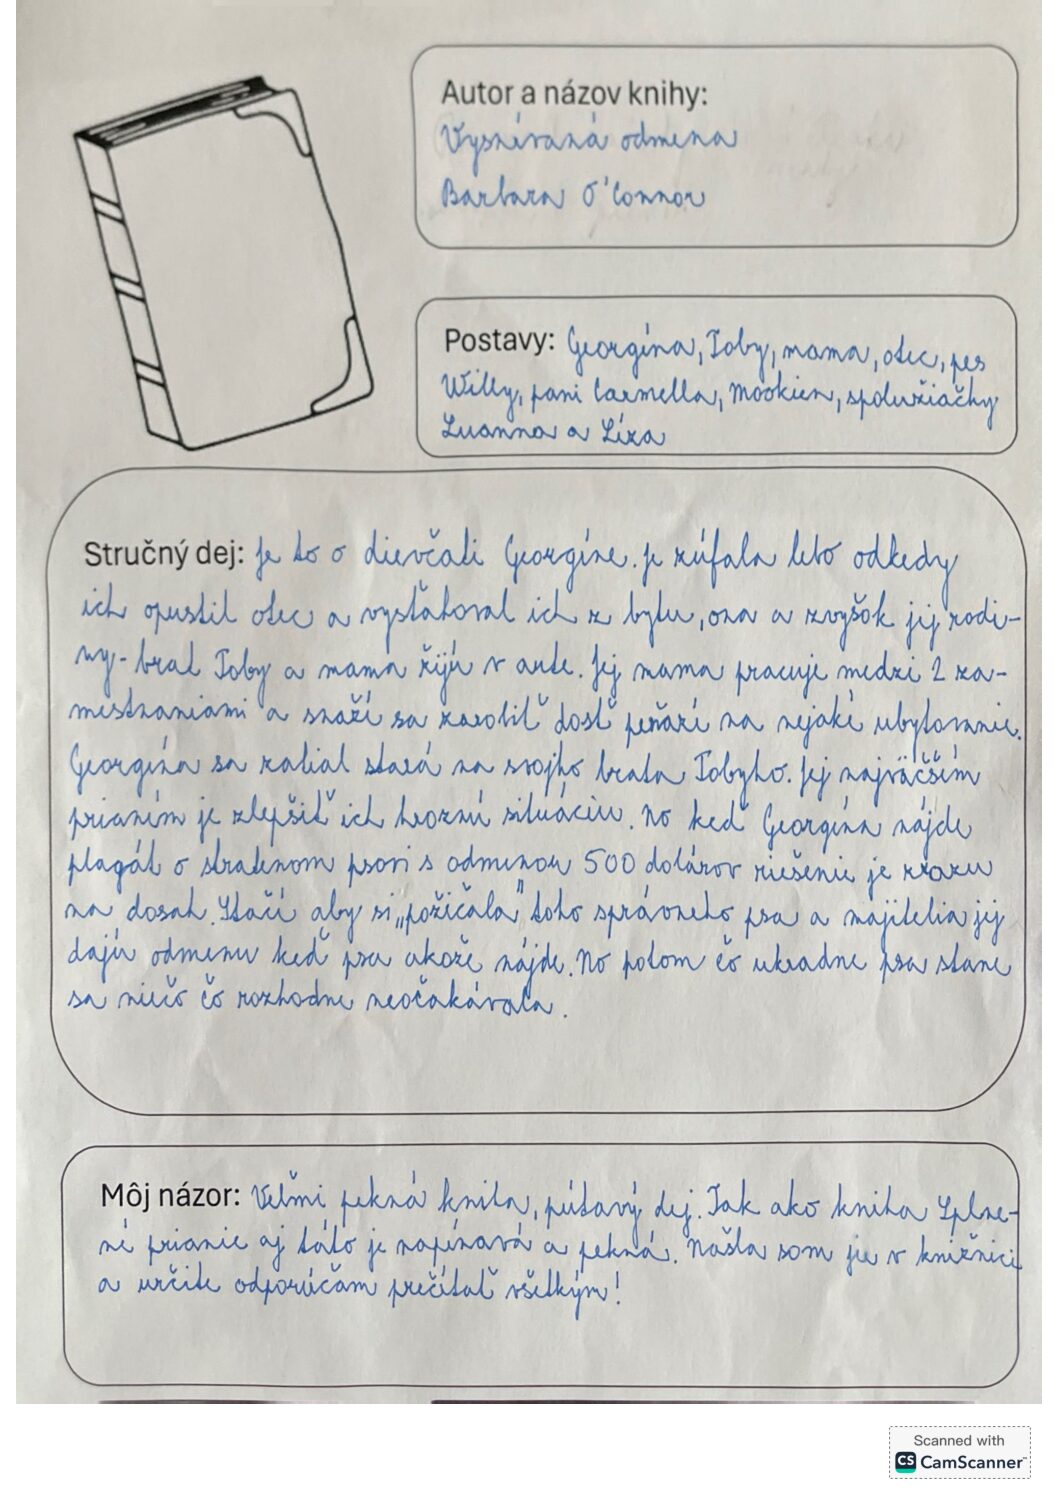 Autor a názov knihy:
Vysnívaná odmena
Barbara O'Connor
Postavy: Georgína, Toby, mama, otec, pes
Willy, pani Carmella, Mookien, spolužiačky
Luanna a Líza
Stručný dej: Je to o dievčati Georgíne. Je zúfala lebo odkedy
ich opustil otec a vysťahoval ich z bytu, ona a zvyšok jej rodi-
ny - brat Toby a mama žijú v aute. Jej mama pracuje medzi 2 za-
mestnaniami a snaží sa zarobiť dosť peňazí na nejaké ubytovanie.
Georgína sa zatiaľ stará na svojho brata Tobyho. Jej najväčším
prianím je zlepšiť ich hroznú situáciu. No keď Georgína nájde
plagát o stratenom psovi s odmenou 500 dolárov riešenie je zrazu
na dosah. Stačí aby si „požičala" toho správneho psa a majitelia jej
dajú odmenu keď psa akože nájde. No potom čo ukradne psa stane
sa niečo čo rozhodne neočakávala.
Môj názor: Veľmi pekná kniha, pútavý dej. Tak ako kniha Splne-
né prianie aj táto je napínavá a pekná. Našla som ju v knižnici
a určite odporúčam prečítať všetkým!
Scanned with
CS CamScanner